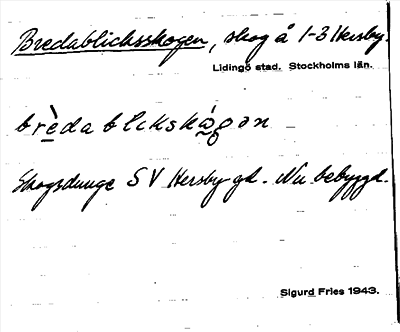 Bredablicksskogen, skog å 1-3 Hersby.
Lidingö stad. Stockholms län.
brèdablıkskågən
Skogsdunge SV Hersby gd. Nu bebyggd.
Sigurd Fries 1943.